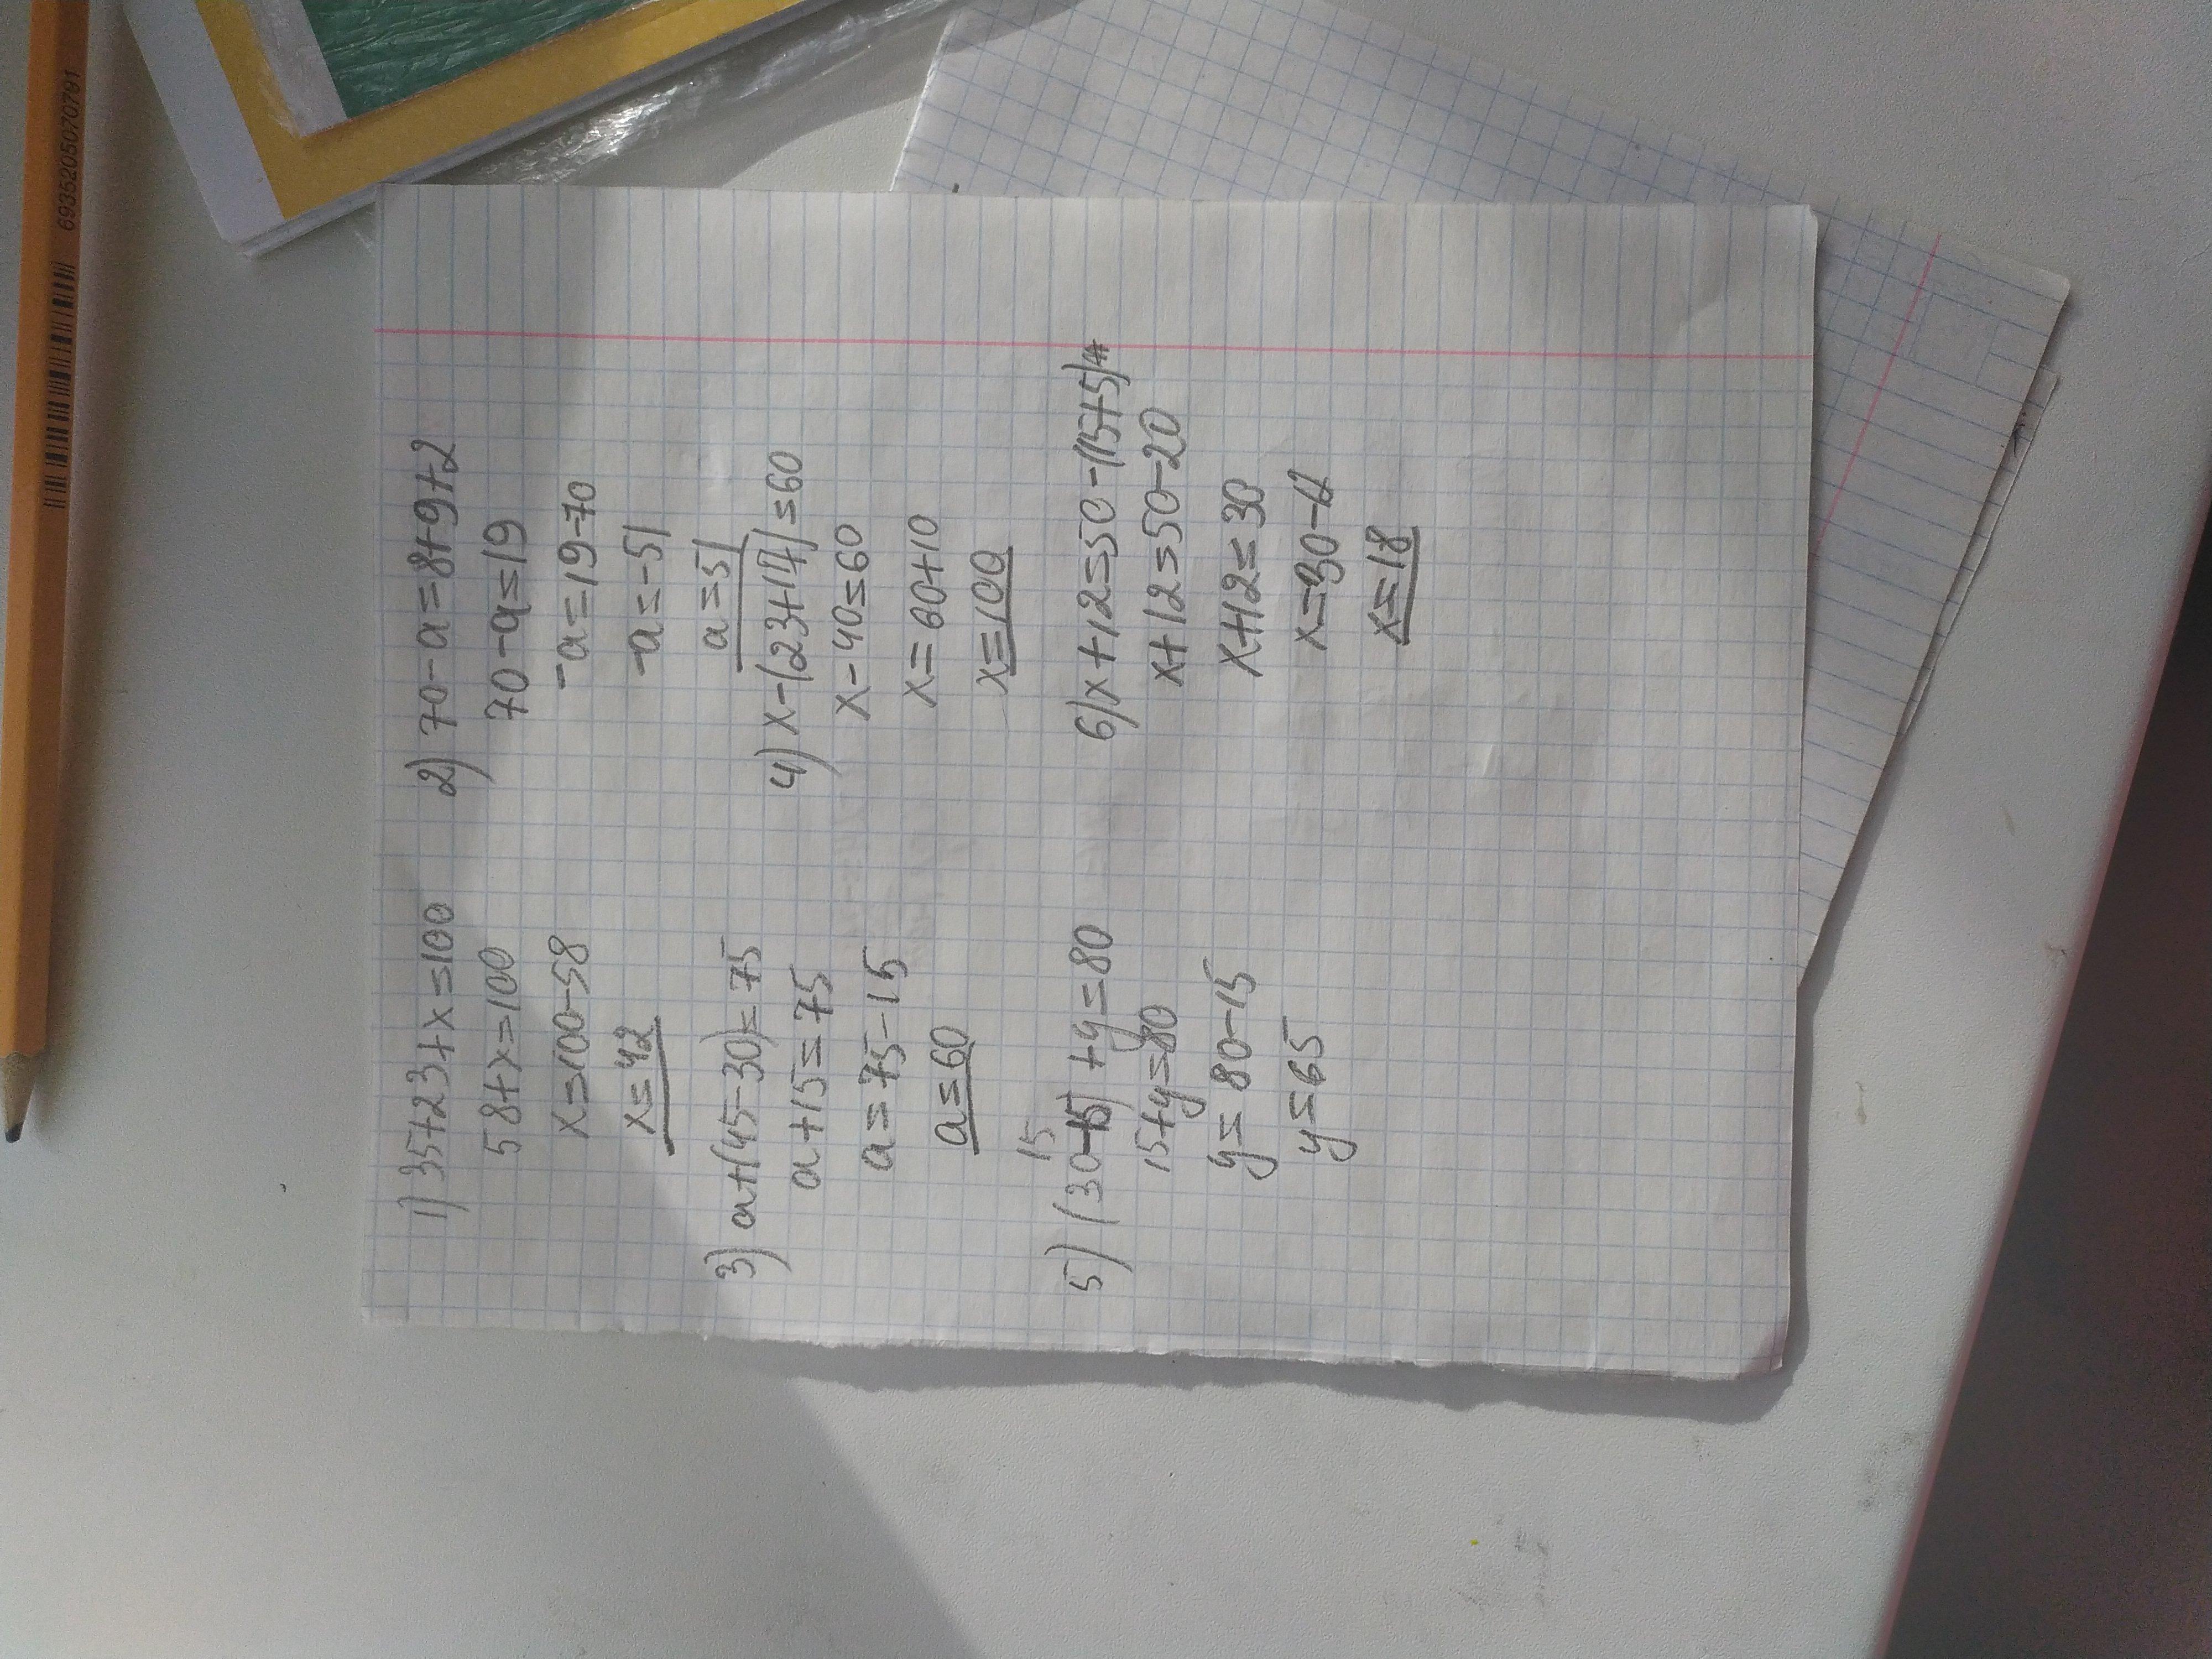 1) 35+23+x=100
58+x=100
x=100-58
x=42
2) 70-a=8+9+2
70-a=19
-a=19-70
-a=-51
a=51
3) a+(45-30)=75
a+15=75
a=75-15
a=60
4) x-(23+17)=60
x-40=60
x=60+10
x=100
15
5) (30-15)+y=80
15+y=80
y=80-15
y=65
6) x+12=50-(15+5)
x+12=50-20
x+12=30
x=30-12
x=18
6935205070791